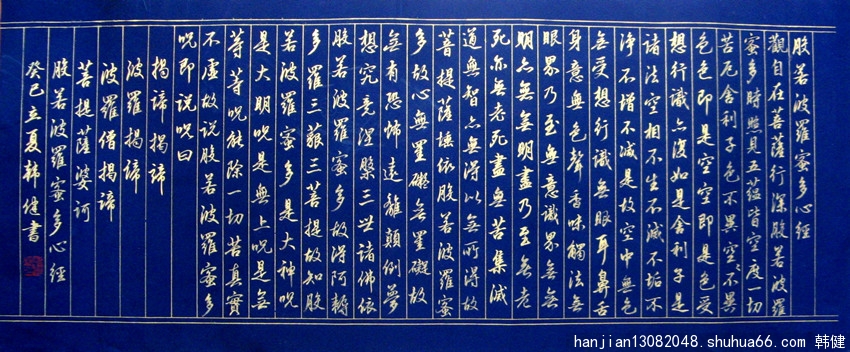 般若波羅蜜多心經
觀自在菩薩行深般若波羅
蜜多時照見五蘊皆空度一切
苦厄舍利子色不異空〻不異
色色即是空空即是色受
想行識亦復如是舍利子是
諸法空相不生不滅不垢不
淨不增不減是故空中無色
無受想行識無眼耳鼻舌
身意無色聲香味觸法無
眼界乃至無意識界無無
明亦無無明盡乃至無老
死亦無老死盡無苦集滅
道無智亦無得以無所得故
菩提薩埵依般若波羅蜜
多故心無罣礙無罣礙故
無有恐怖遠離顛倒夢
想究竟涅槃三世諸佛依
般若波羅蜜多故得阿耨
多羅三藐三菩提故知般
若波羅蜜多是大神咒
是大明咒是無上咒是無
等等咒能除一切苦真實
不虛故說般若波羅蜜多
咒即說咒曰
揭諦揭諦
波羅揭諦
波羅僧揭諦
菩提薩婆訶
般若波羅蜜多心經
癸巳立夏韓健書
hanjian13082048.shuhua66.com 韩健